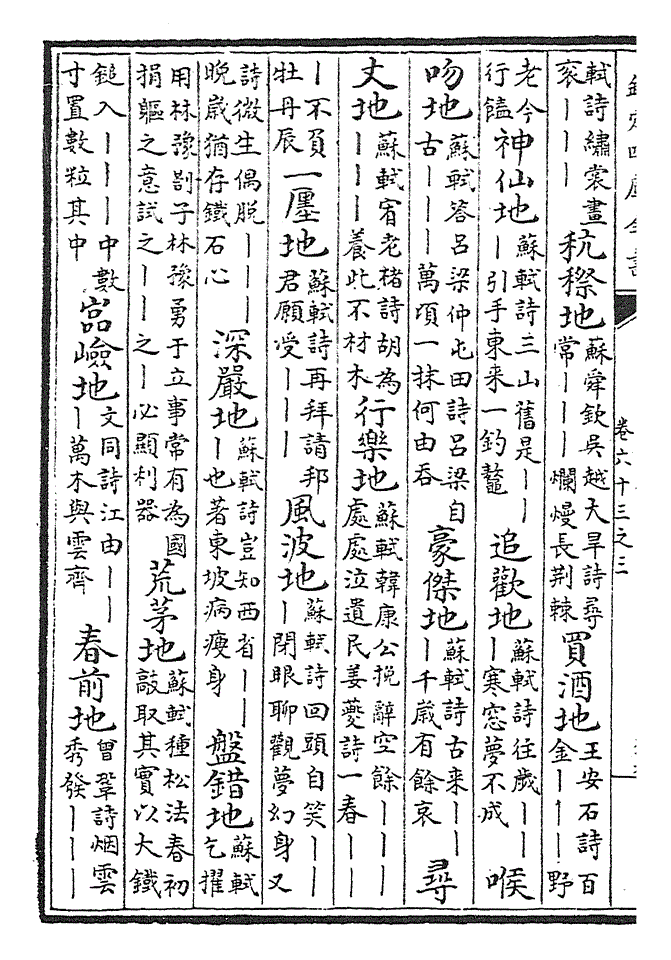 卷六十三之三
軾詩繡裳畫衮丨丨丨秔穄地蘇舜欽吳越大旱詩尋常丨丨丨爛熳長荆棘買酒地王安石詩百金丨丨丨野
老今行饁神仙地蘇軾詩三山舊是丨丨丨引手東来一釣鼇追歡地蘇軾詩往歲丨丨丨寒窓夢不成喉
吻地蘇軾答呂梁仲屯田詩呂梁自古丨丨丨萬頃一抹何由吞豪傑地蘇軾詩古来丨丨丨千歲有餘哀尋
丈地蘇軾宥老楮詩胡為丨丨丨養此不材木行樂地蘇軾韓康公挽辭空餘丨丨丨處處泣遺民姜夔詩一春丨丨
丨不負牡丹辰一廛地蘇軾詩再拜請邦君願受丨丨丨風波地蘇軾詩回頭自笑丨丨丨閉眼聊觀夢幻身又
詩微生偶脫丨丨丨晚歲猶存鐵石心深嚴地蘇軾詩豈知西省丨丨丨也著東坡病瘦身盤錯地蘇軾乞擢
用林豫劄子林豫勇于立事常有為國捐軀之意試之丨丨之丨必顯利器荒茅地蘇軾種松法春初敲取其實以大鐵
鎚入丨丨丨中數寸置數粒其中嵓嶮地文同詩江由丨丨丨萬木與雲齊春前地曾鞏詩烟雲秀發丨丨丨